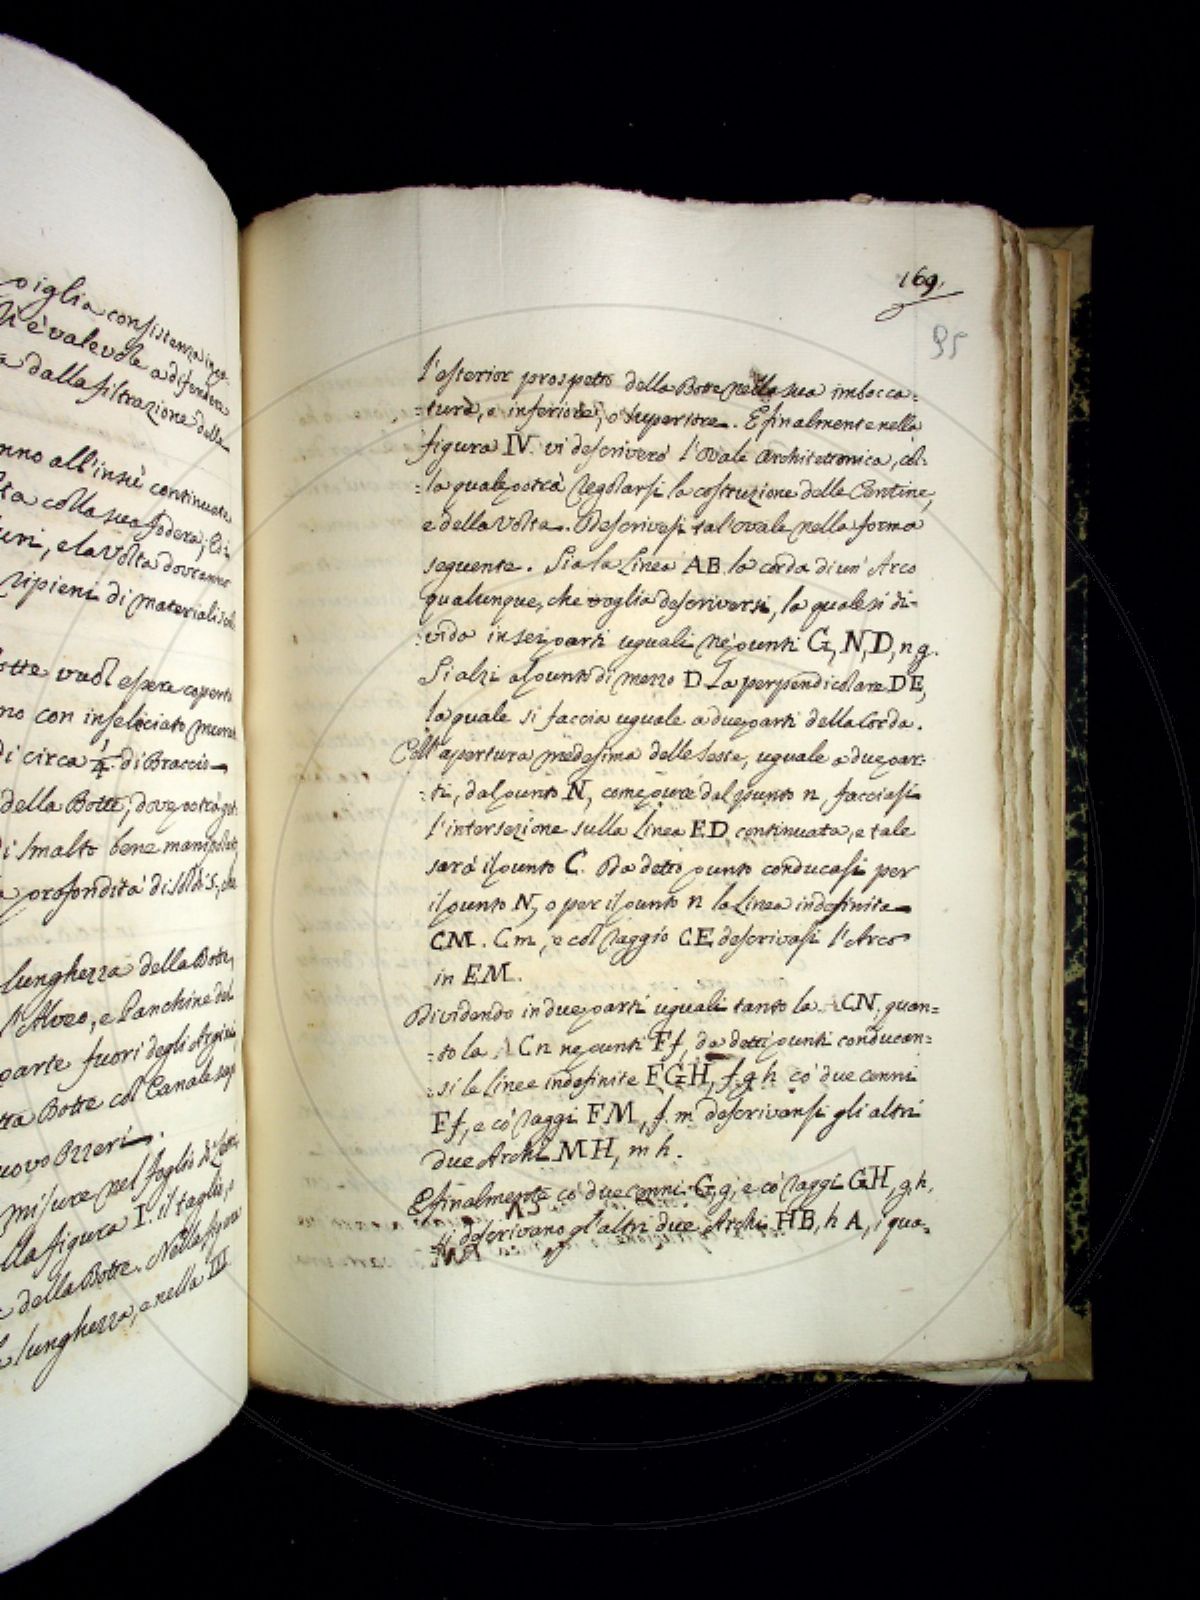 piglia consistenza
è valevole a difendere
dalla filtrazione delle
all'insù continuate
colla sua fodera; Ed i
muri, e la volta dovranno
ripieni di materiali
Botte vuol essere coperto
con inseliciato
di circa 1/4 di Braccio
della Botte, dove potrà
di smalto bene manipolato
profondità di soldi 5,
lunghezza della Botte,
l'Alveo, e Panchine del
parte fuori degli Argini
Botte col Canale
nuovo Ozzeri.
misure nel foglio di
nella figura I. il taglio,
della Botte. Nella figura
lunghezza, e nella III
169.
95
l'esterior prospetto della Botte nella sua imbocca=
=tura, o inferiore, o superiore. E finalmente nella
figura IV. vi descriverò l'ovale Architettonica, col=
=la quale potrà regolarsi la costruzione delle Centine,
e della Volta. Descrivesi tal'ovale nella forma
seguente. Sia la Linea AB la corda di un'Arco
qualunque, che voglia descriversi, la quale si di=
=vida in sei parti uguali ne' punti G, N, D, n g.
Si alzi al punto di mezzo D la perpendicolare DE,
la quale si faccia uguale a due parti della Corda.
Coll'apertura medesima delle seste, uguale a due par=
=ti, dal punto N, come pure dal punto n, facciasi
l'intersezione sulla Linea ED continuata, e tale
sarà il punto C. Da detto punto conducasi per
il punto N, o per il punto n la Linea indefinita
CM. Cm, e col raggio CE descrivasi l'Arco
in EM.
Dividendo in due parti uguali tanto la CN, quan=
=to la Cn ne punti Ff, da detti punti conducan=
=si le linee indefinite FGH, f.g h co' due cenni
Ff, e co' raggi FM, f. m descrivansi gli altri
due Archi MH, m h.
E finalmente co' due cenni G, g, e co' raggi GH, g h,
si descrivano gl'altri due Archi HB, h A, i qua=